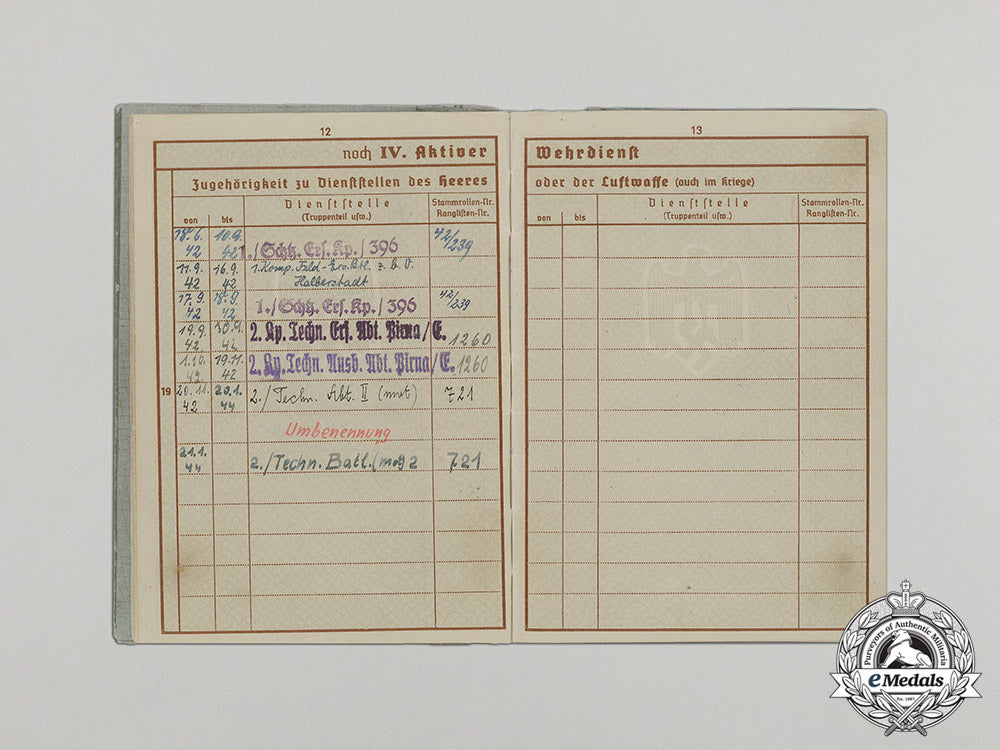 12
noch IV. Aktiver
Zugehörigkeit zu Dienststellen des Heeres
von bis
Dienststelle
(Truppenteil usw.)
Stammrollen-Nr.
Ranglisten-Nr.
18.6. 10.9. 42/239
42 42 1./Schtz. Ers. Kp./396
11.9. 16.9. 1. Komp. z. b. V.
42 42 Halberstadt
17.9. 18.9. 1./Schtz. Ers. Kp./396 42/239
42 42
19.9. 30.9. 2. Kp. Techn. Ers. Abt. Pirna/E. 1260
42 42
1.10. 19.11. 2. Kp. Techn. Ausb. Abt. Pirna/E. 1260
42 42
19 20.11. 20.1. 2./Techn. Abt. II (mot) 721
42 44
Umbenennung
21.1.
44 2./Techn. Batl. (mot) 2 721
13
Wehrdienst
oder der Luftwaffe (auch im Kriege)
von bis
Dienststelle
(Truppenteil usw.)
Stammrollen-Nr.
Ranglisten-Nr.
Purveyors of Authentic Militaria
eMedals
Est. 1981